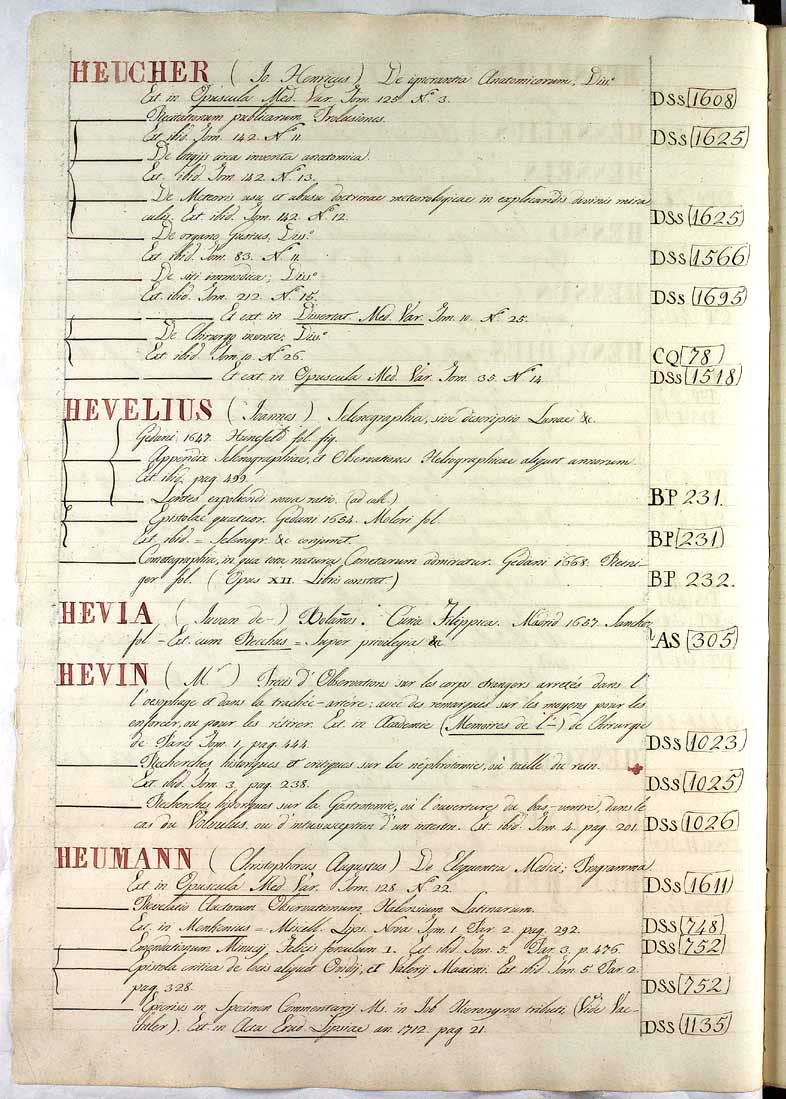 HEUCHER ( Jo. Henricus ) De ignorantia Anatomicorum; Diss.
Ext. in Opuscula Med. Var. Tom. 125. N.° 3. DSs 1608
Recitationum publicarum Prolusiones.
Ext. ibid. Tom. 142. N.° 11. DSs 1625
De inventa anatomica.
Ext. ibid. Tom. 142. N.° 13.
De Meteoris usu, et abusu doctrinae meteorologicae in explicandis divinis mira
culis. Ext. ibid. Tom. 142. N.° 12. DSs 1625
De organo Gustus, Diss.
Ext. ibid. Tom. 83. N.° 11. DSs 1566
De siti immodica; Diss.
Ext. ibid. Tom. 212. N.° 15. DSs 1695
Et ext. in Dissertat. Med. Var. Tom. 10. N.° 25.
De Chirurgo Diss.
Ext. ibid. Tom. 10. N.° 26. CQ 78
Et ext. in Opuscula Med. Var. Tom. 35. N.° 14. DSs 1518
HEVELIUS ( Joannes ) Selenographia, sive descriptio Lunae &c.
Gedani 1647. Hunefeld fol. fig.
Appendix Selenographiae, et Observationes Heliographicae aliquot annorum.
Ext. ibid. pag. 499.
Lentes expoliendi nova ratio. (ad calc.) BP 231.
Epistolae quatuor. Gedani 1654. fol.
Ext. ibid. = Selenogr. &c conjunct. BP 231
Cometographia, in qua tota natura Cometarum admiratur. Gedani 1668. Reini-
ger fol. ( Opus XII. Libris constat.) BP 232.
HEVIA ( Juvan de-) Bolaños: Curia Filippica. Madrid 1657. Sanchez
fol - Ext. cum = Super privilegia &c AS 305
HEVIN ( M.r ) Precis d'Observations sur les corps etrangers arretés dans l'
l'oesophage et dans la trachée-artére: avec des remarques sur les moyens pour les
enfoncer, ou pour les retirer. Ext. in Academie (Memoires de l'-) de Chirurgie
de Paris Tom. 1. pag. 444. DSs 1023
Recherches historiques et critiques sur la néphrotomie, où taille du rein.
Ext. ibid. Tom. 3. pag. 238. DSs 1025
Recherches historiques sur la Gastrotomie, où l'ouvertures du bas-ventre, dans le
cas du Volvulus, ou d'intussusception d'un intestin. Ext. ibid. Tom. 4. pag. 201. DSs 1026
HEUMANN ( Christophorus Augustus ) De Eloquentia Medici; Programma
Ext. in Opuscula Med. Var. Tom. 128. N.° 22. DSs 1611
Revelatio Auctorum Observationum Halensium Latinarum.
Ext. in Menkenius = Miscell. Lips. Nova Tom. 1. Par. 2. pag. 292. DSs 748
Emendationum Minucij Felicis 1. Ext. ibid. Tom. 5. Par. 3. p. 476. DSs 752
Epistola critica de locis aliquot Ovidij, et Valerij Maximi. Ext. ibid. Tom. 5. Par. 2.
pag. 328. DSs 752
Epicrisis in Specimen Commentarij Ms. in Iob Hieronymo tributi (Vide Vac-
htler). Ext. in Acta Erud. Lipsiae an. 1712. pag. 21. DSs 1135